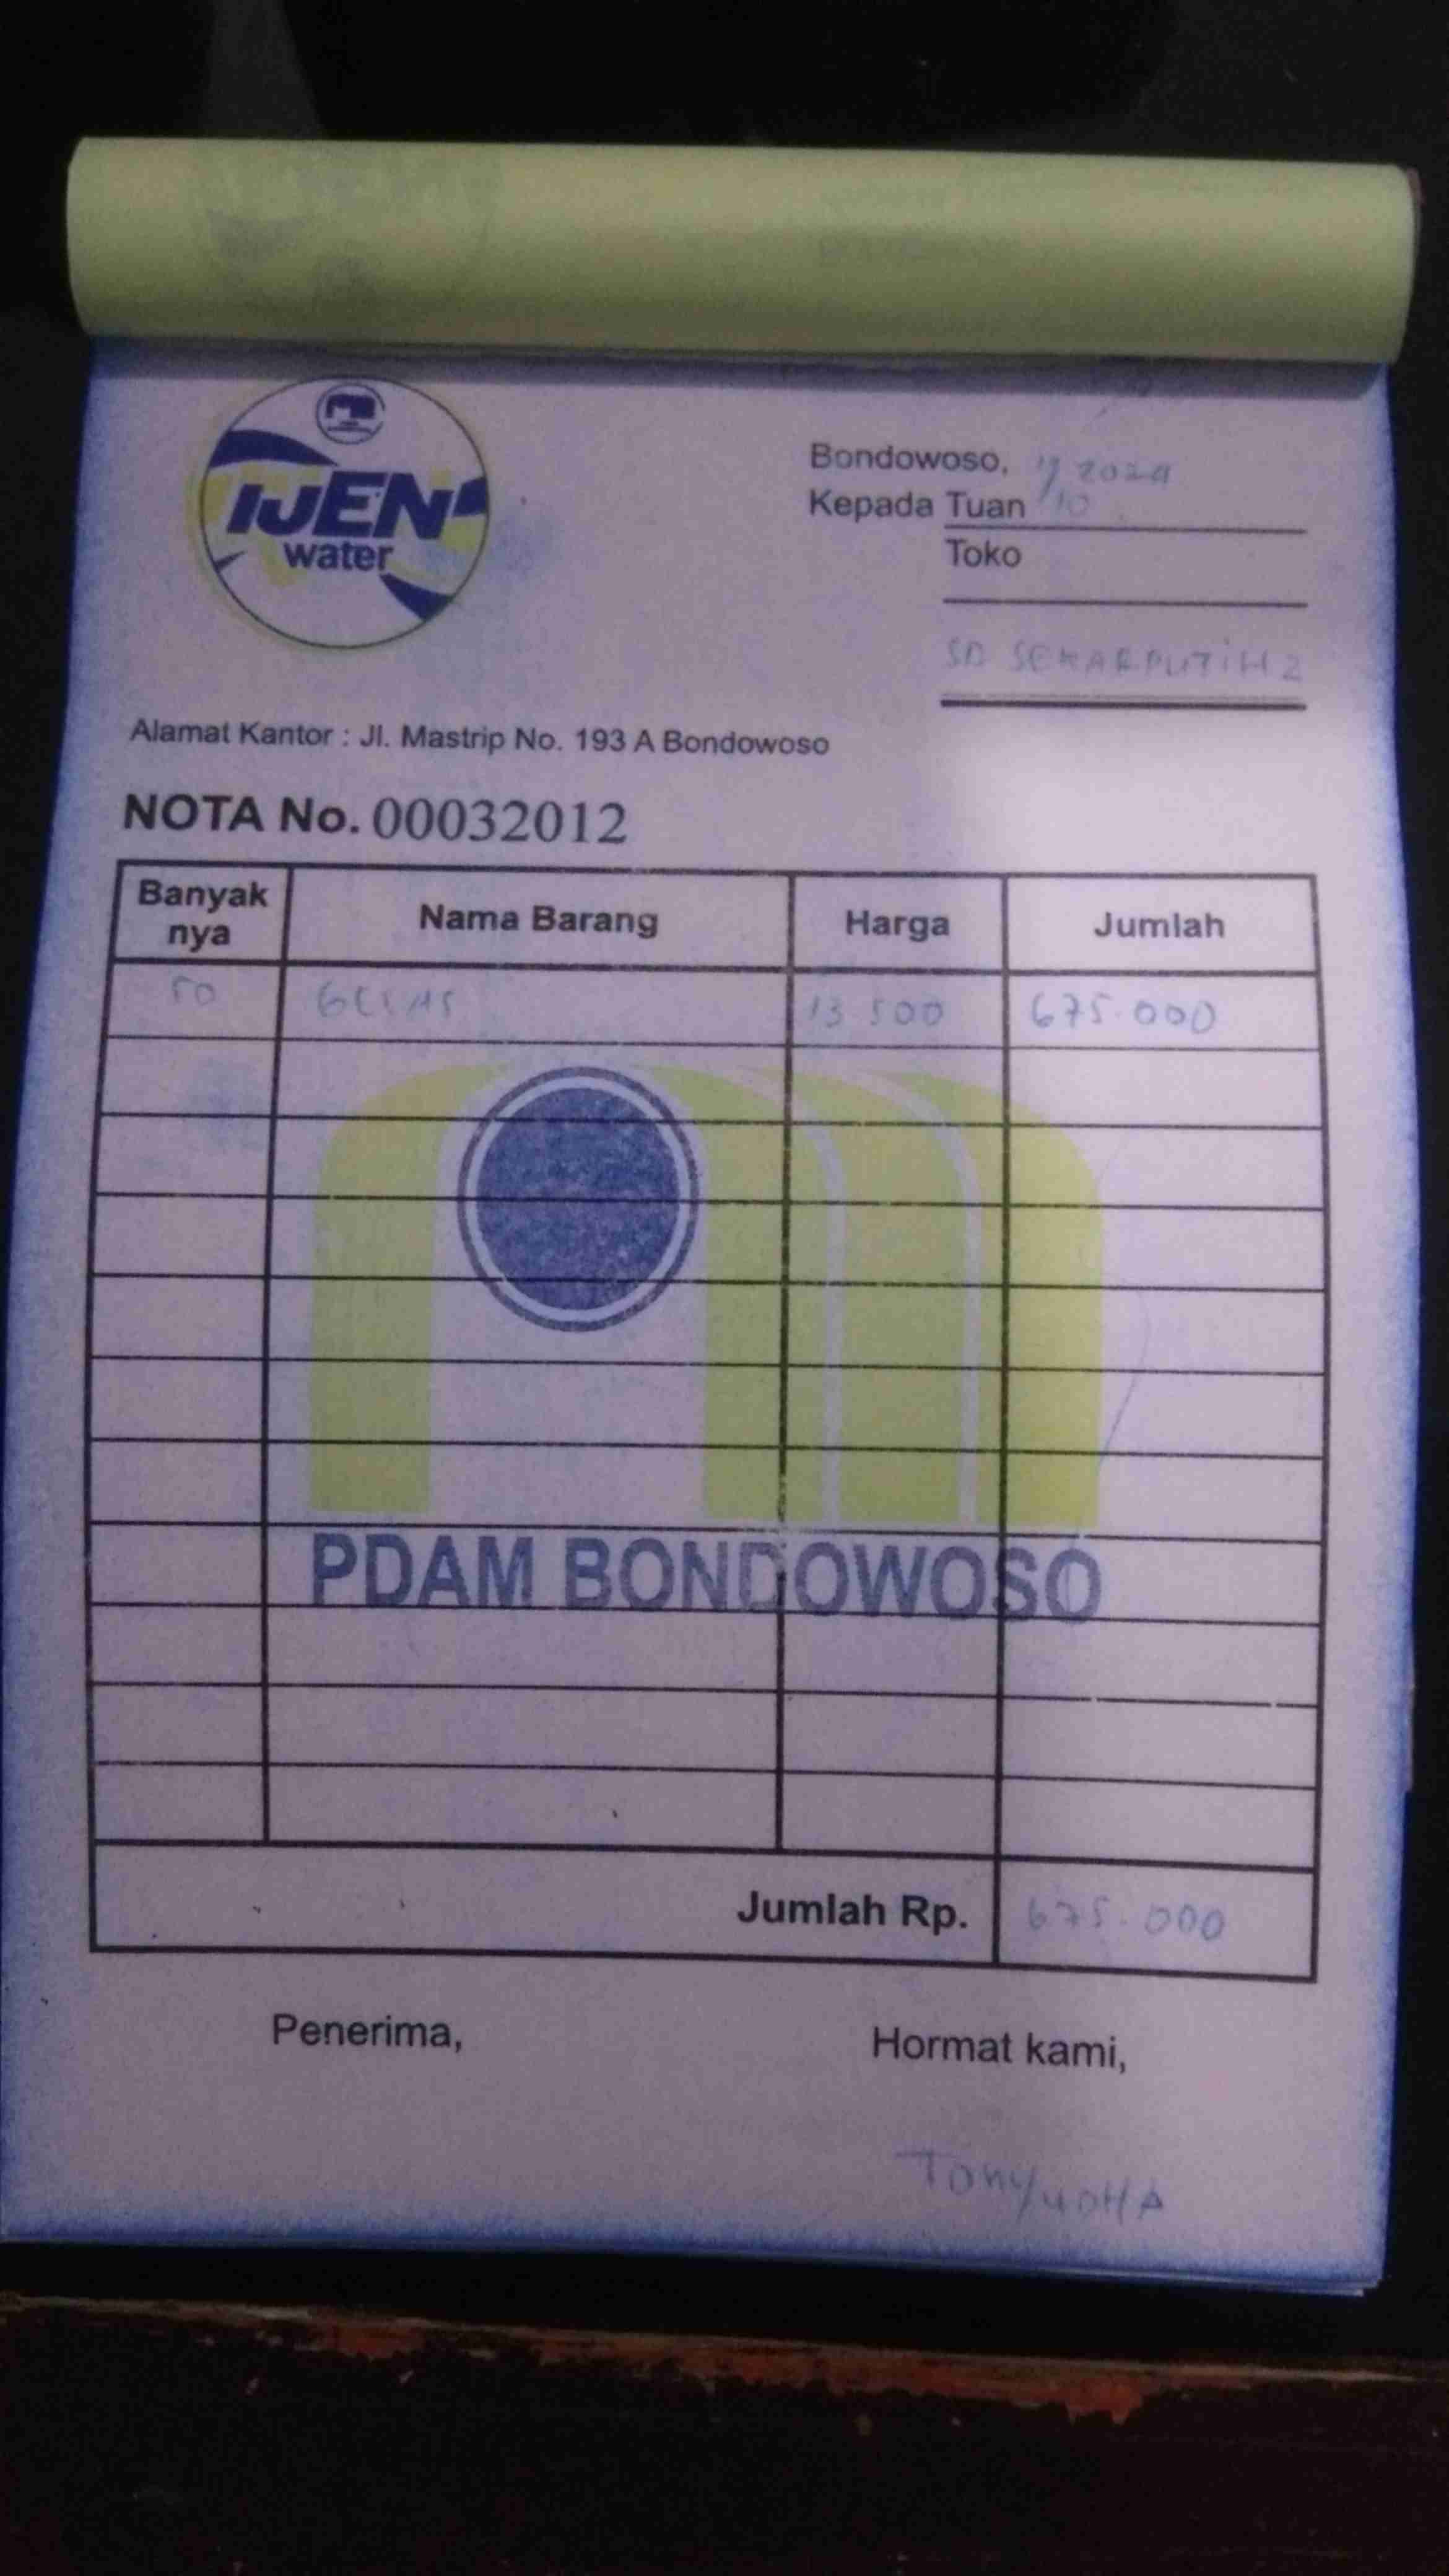 IJEN
water
Bondowoso, 2024
Kepada Tuan 10
Toko
SD SEKARPUTIH 2
Alamat Kantor : Jl. Mastrip No. 193 A Bondowoso
NOTA No. 00032012
Banyak nya Nama Barang Harga Jumlah
50 GELAS 13 500 675.000
PDAM BONDOWOSO
Jumlah Rp. 675.000
Penerima, Hormat kami,
Tony